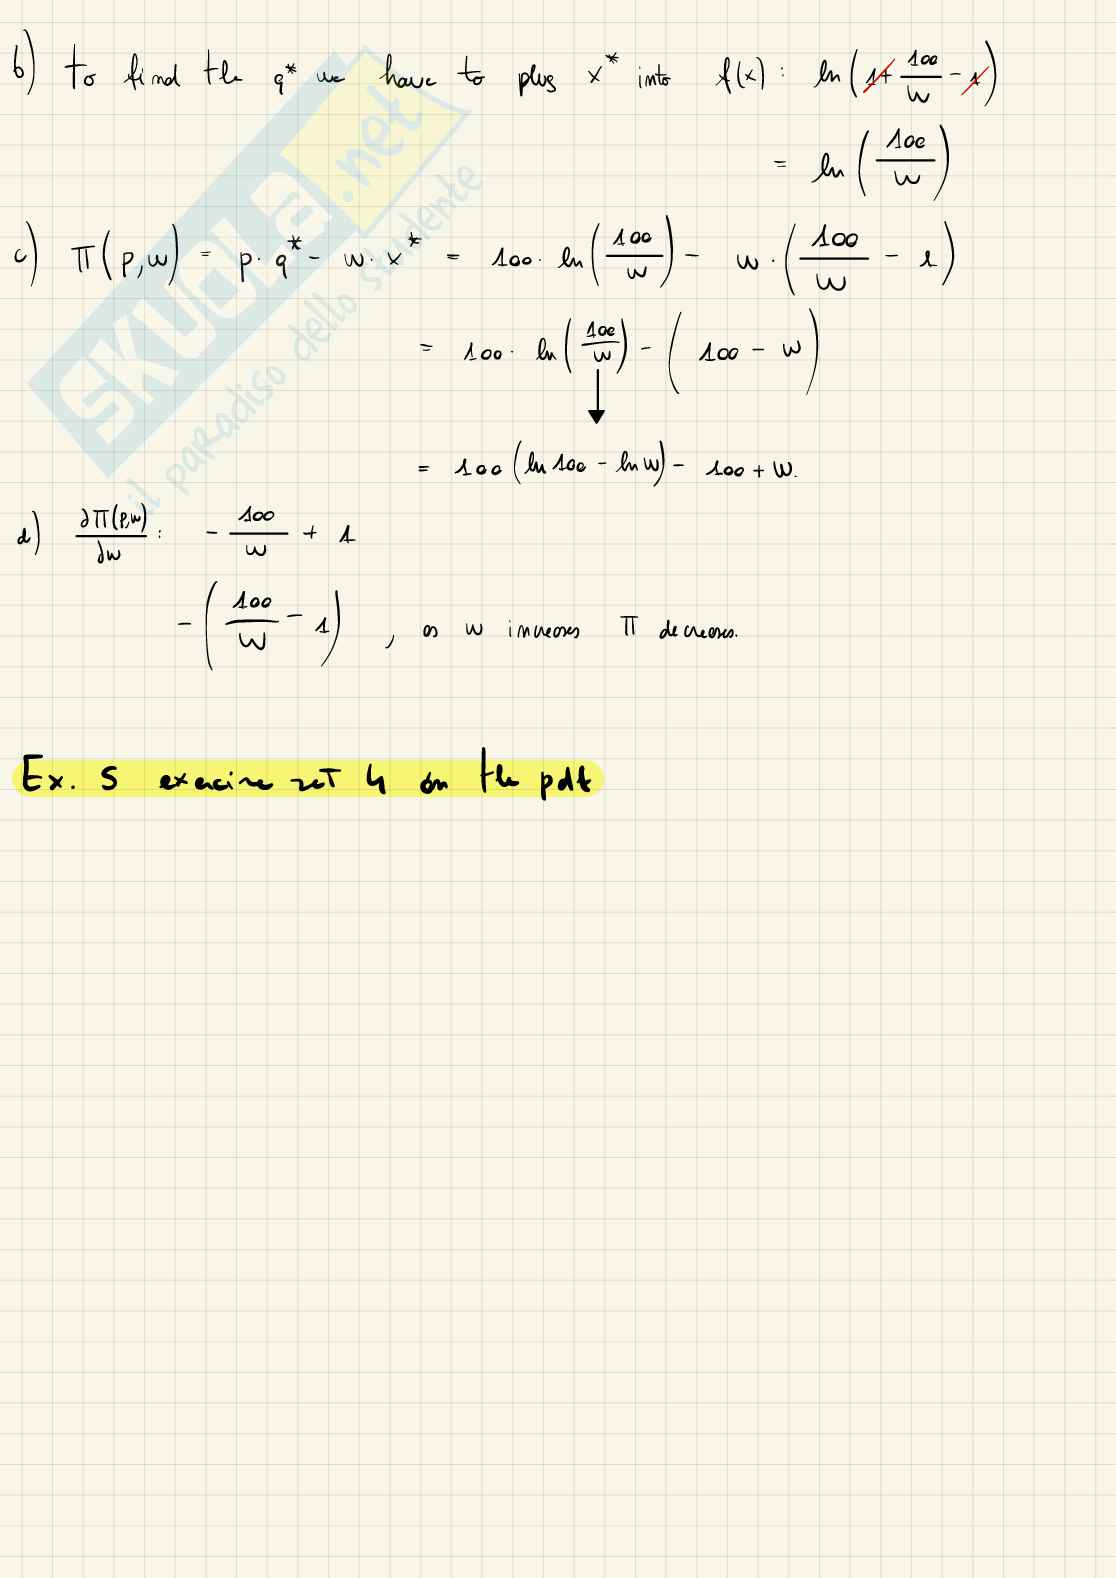 b) to find the q* we have to plus x* into f(x): ln(1+ 100/w - 1)
= ln(100/w)
c) π(p,w) = p · q* - w · x* = 100 · ln(100/w) - w · (100/w - 1)
= 100 · ln(100/w) - (100 - w)
= 100 (ln 100 - ln w) - 100 + w.
d) ∂π(p,w)/∂w : - 100/w + 1
- (100/w - 1) , as w increases π decreases.
Ex. 5 exercise set 4 on the pdf
SKUOLA.net
il paradiso dello studente